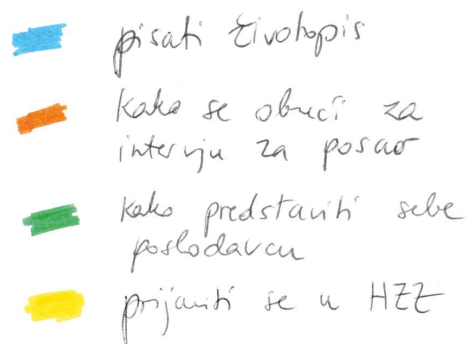 pisati životopis
kako se obući za
intervju za posao
kako predstaviti sebe
poslodavcu
prijaviti se u HZZ